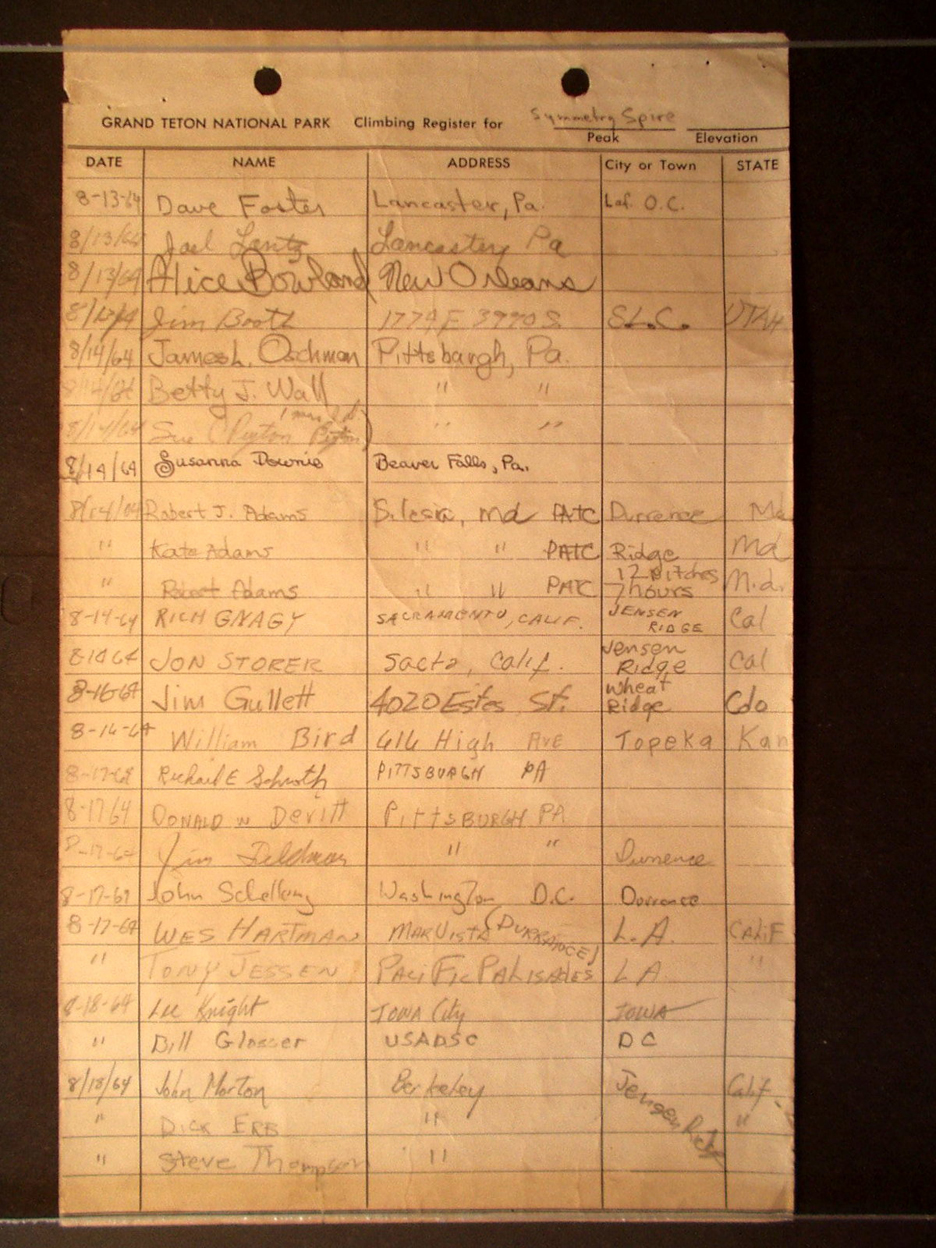 Symmetry Spire
GRAND TETON NATIONAL PARK Climbing Register for
Peak Elevation
DATE NAME ADDRESS City or Town STATE
8-13-64 Dave Foster Lancaster, Pa. O.C.
8/13/64 Joel Lentz Lancaster, Pa
8/13/64 Alice Bowland New Orleans
Jim Booth 1774 E 3990 S S.L.C. UTAH
8/14/64 James L. Oschman Pittsburgh, Pa.
8/14/64 Betty J. Wall " "
8/14/64 Sue " "
8/14/64 Susanna Downie Beaver Falls, Pa.
8/14/64 Robert J. Adams Silesia, Md PATC Durrence Md
" Kate Adams " " PATC Ridge Md
" Robert Adams " " PATC 12 Pitches 7 hours M.d.
8-14-64 RICH GNAGY SACRAMENTO, CALIF. JENSEN RIDGE Cal
8 14 64 JON STORER Sacto, Calif. Jensen Ridge Cal
8-16-64 Jim Gullett 4020 Estes St. Wheat Ridge Colo
8-16-64 William Bird 616 High AVE Topeka Kan
8-17-64 Richard E Schroth PITTSBURGH PA
8-17 64 DONALD W Devitt PittSBURGH PA
8-17-64 Jim " " Durrence
8-17-64 John Schelleng Washington D.C. Dorrence
8-17-64 WES HARTMAN MAR VISTA (DURRANCE) L.A. CALIF
" TONY JESSEN PACIFIC PALISADES L A. "
8-18-64 Lee Knight IOWA City IOWA
" Bill Glosser USADSC D C
8/18/64 John Morton Berkeley Jensen Ridge Calif.
" DICK ERB " "
" Steve Thompson "